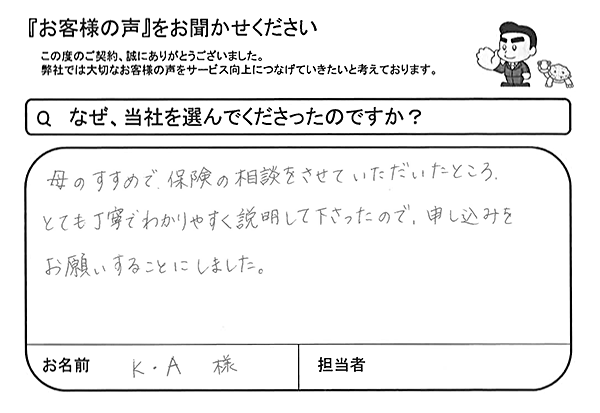 『お客様の声』をお聞かせください
この度のご契約、誠にありがとうございました。
弊社では大切なお客様の声をサービス向上につなげていきたいと考えております。
Q なぜ、当社を選んでくださったのですか？
母のすすめで、保険の相談をさせていただいたところ、
とても丁寧でわかりやすく説明して下さったので、申し込みを
お願いすることにしました。
お名前 K・A 様 担当者